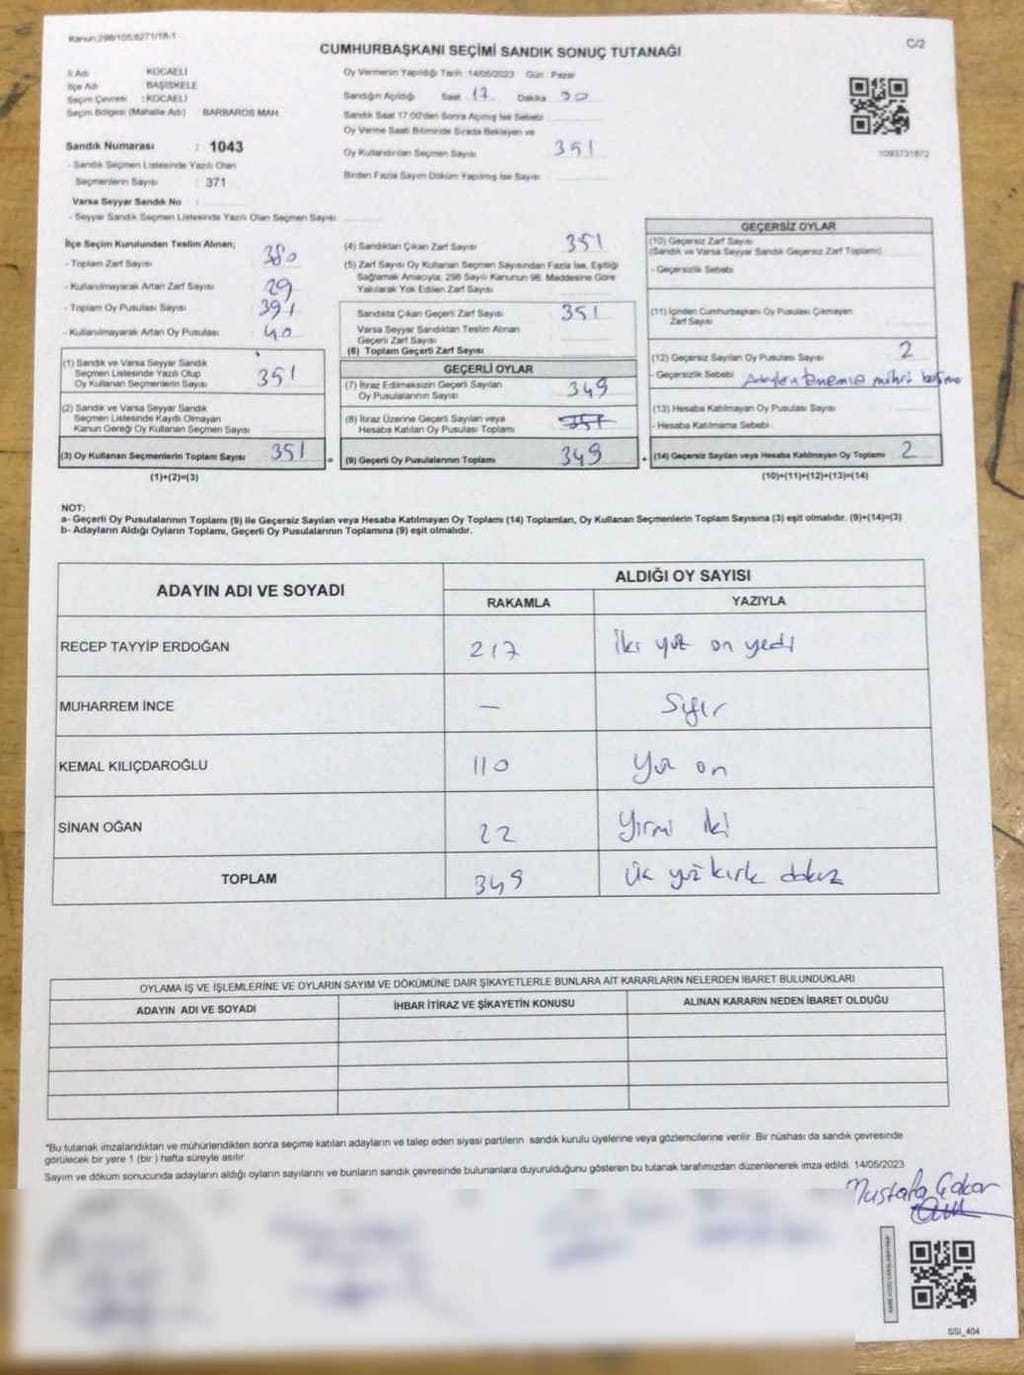 Kanun:298/105,6271/18-1
C/2
CUMHURBAŞKANI SEÇİMİ SANDIK SONUÇ TUTANAĞI
İl Adı KOCAELİ
İlçe Adı BAŞİSKELE
Seçim Çevresi : KOCAELİ
Seçim Bölgesi (Mahalle Adı) BARBAROS MAH.
Sandık Numarası : 1043
- Sandık Seçmen Listesinde Yazılı Olan
Seçmenlerin Sayısı : 371
Varsa Seyyar Sandık No :
- Seyyar Sandık Seçmen Listesinde Yazılı Olan Seçmen Sayısı
Oy Vermenin Yapıldığı Tarih :14/05/2023 Gün : Pazar
Sandığın Açıldığı Saat 17 Dakika 30
Sandık Saat 17.00'den Sonra Açılmış İse Sebebi
Oy Verme Saati Bitiminde Sırada Bekleyen ve
Oy Kullandırılan Seçmen Sayısı 351
Birden Fazla Sayım Döküm Yapılmış İse Sayısı
1093731872
İlçe Seçim Kurulundan Teslim Alınan;
- Toplam Zarf Sayısı 380
- Kullanılmayarak Artan Zarf Sayısı 29
- Toplam Oy Pusulası Sayısı 391
- Kullanılmayarak Artan Oy Pusulası 40
(1) Sandık ve Varsa Seyyar Sandık
Seçmen Listesinde Yazılı Olup
Oy Kullanan Seçmenlerin Sayısı 351
(2) Sandık ve Varsa Seyyar Sandık
Seçmen Listesinde Kaydı Olmayan
Kanun Gereği Oy Kullanan Seçmen Sayısı
(3) Oy Kullanan Seçmenlerin Toplam Sayısı 351
(1)+(2)=(3)
(4) Sandıktan Çıkan Zarf Sayısı 351
(5) Zarf Sayısı Oy Kullanan Seçmen Sayısından Fazla İse, Eşitliği
Sağlamak Amacıyla, 298 Sayılı Kanunun 98. Maddesine Göre
Yakılarak Yok Edilen Zarf Sayısı
Sandıkta Çıkan Geçerli Zarf Sayısı 351
Varsa Seyyar Sandıktan Teslim Alınan
Geçerli Zarf Sayısı
(6) Toplam Geçerli Zarf Sayısı
GEÇERLİ OYLAR
(7) İtiraz Edilmeksizin Geçerli Sayılan
Oy Pusulalarının Sayısı 349
(8) İtiraz Üzerine Geçerli Sayılan veya
Hesaba Katılan Oy Pusulası Toplamı 351
= (9) Geçerli Oy Pusulalarının Toplamı 349
GEÇERSİZ OYLAR
(10) Geçersiz Zarf Sayısı
(Sandık ve Varsa Seyyar Sandık Geçersiz Zarf Toplamı)
- Geçersizlik Sebebi
(11) İçinden Cumhurbaşkanı Oy Pusulası Çıkmayan
Zarf Sayısı
(12) Geçersiz Sayılan Oy Pusulası Sayısı 2
- Geçersizlik Sebebi
(13) Hesaba Katılmayan Oy Pusulası Sayısı
- Hesaba Katılmama Sebebi
+ (14) Geçersiz Sayılan veya Hesaba Katılmayan Oy Toplamı 2
(10)+(11)+(12)+(13)=(14)
NOT:
a- Geçerli Oy Pusulalarının Toplamı (9) ile Geçersiz Sayılan veya Hesaba Katılmayan Oy Toplamı (14) Toplamları, Oy Kullanan Seçmenlerin Toplam Sayısına (3) eşit olmalıdır. (9)+(14)=(3)
b- Adayların Aldığı Oyların Toplamı, Geçerli Oy Pusulalarının Toplamına (9) eşit olmalıdır.
ADAYIN ADI VE SOYADI
ALDIĞI OY SAYISI
RAKAMLA YAZIYLA
RECEP TAYYİP ERDOĞAN 217 İki yüz on yedi
MUHARREM İNCE — Sıfır
KEMAL KILIÇDAROĞLU 110 Yüz on
SİNAN OĞAN 22 Yirmi iki
TOPLAM 349 Üç yüz kırk dokuz
OYLAMA İŞ VE İŞLEMLERİNE VE OYLARIN SAYIM VE DÖKÜMÜNE DAİR ŞİKAYETLERLE BUNLARA AİT KARARLARIN NELERDEN İBARET BULUNDUKLARI
ADAYIN ADI VE SOYADI İHBAR İTİRAZ VE ŞİKAYETİN KONUSU ALINAN KARARIN NEDEN İBARET OLDUĞU
*Bu tutanak imzalandıktan ve mühürlendikten sonra seçime katılan adayların ve talep eden siyasi partilerin sandık kurulu üyelerine veya gözlemcilerine verilir. Bir nüshası da sandık çevresinde
görülecek bir yere 1 (bir ) hafta süreyle asılır.
Sayım ve döküm sonucunda adayların aldığı oyların sayılarını ve bunların sandık çevresinde bulunanlara duyurulduğunu gösteren bu tutanak tarafımızdan düzenlenerek imza edildi. 14/05/2023
Mustafa
SSI_404